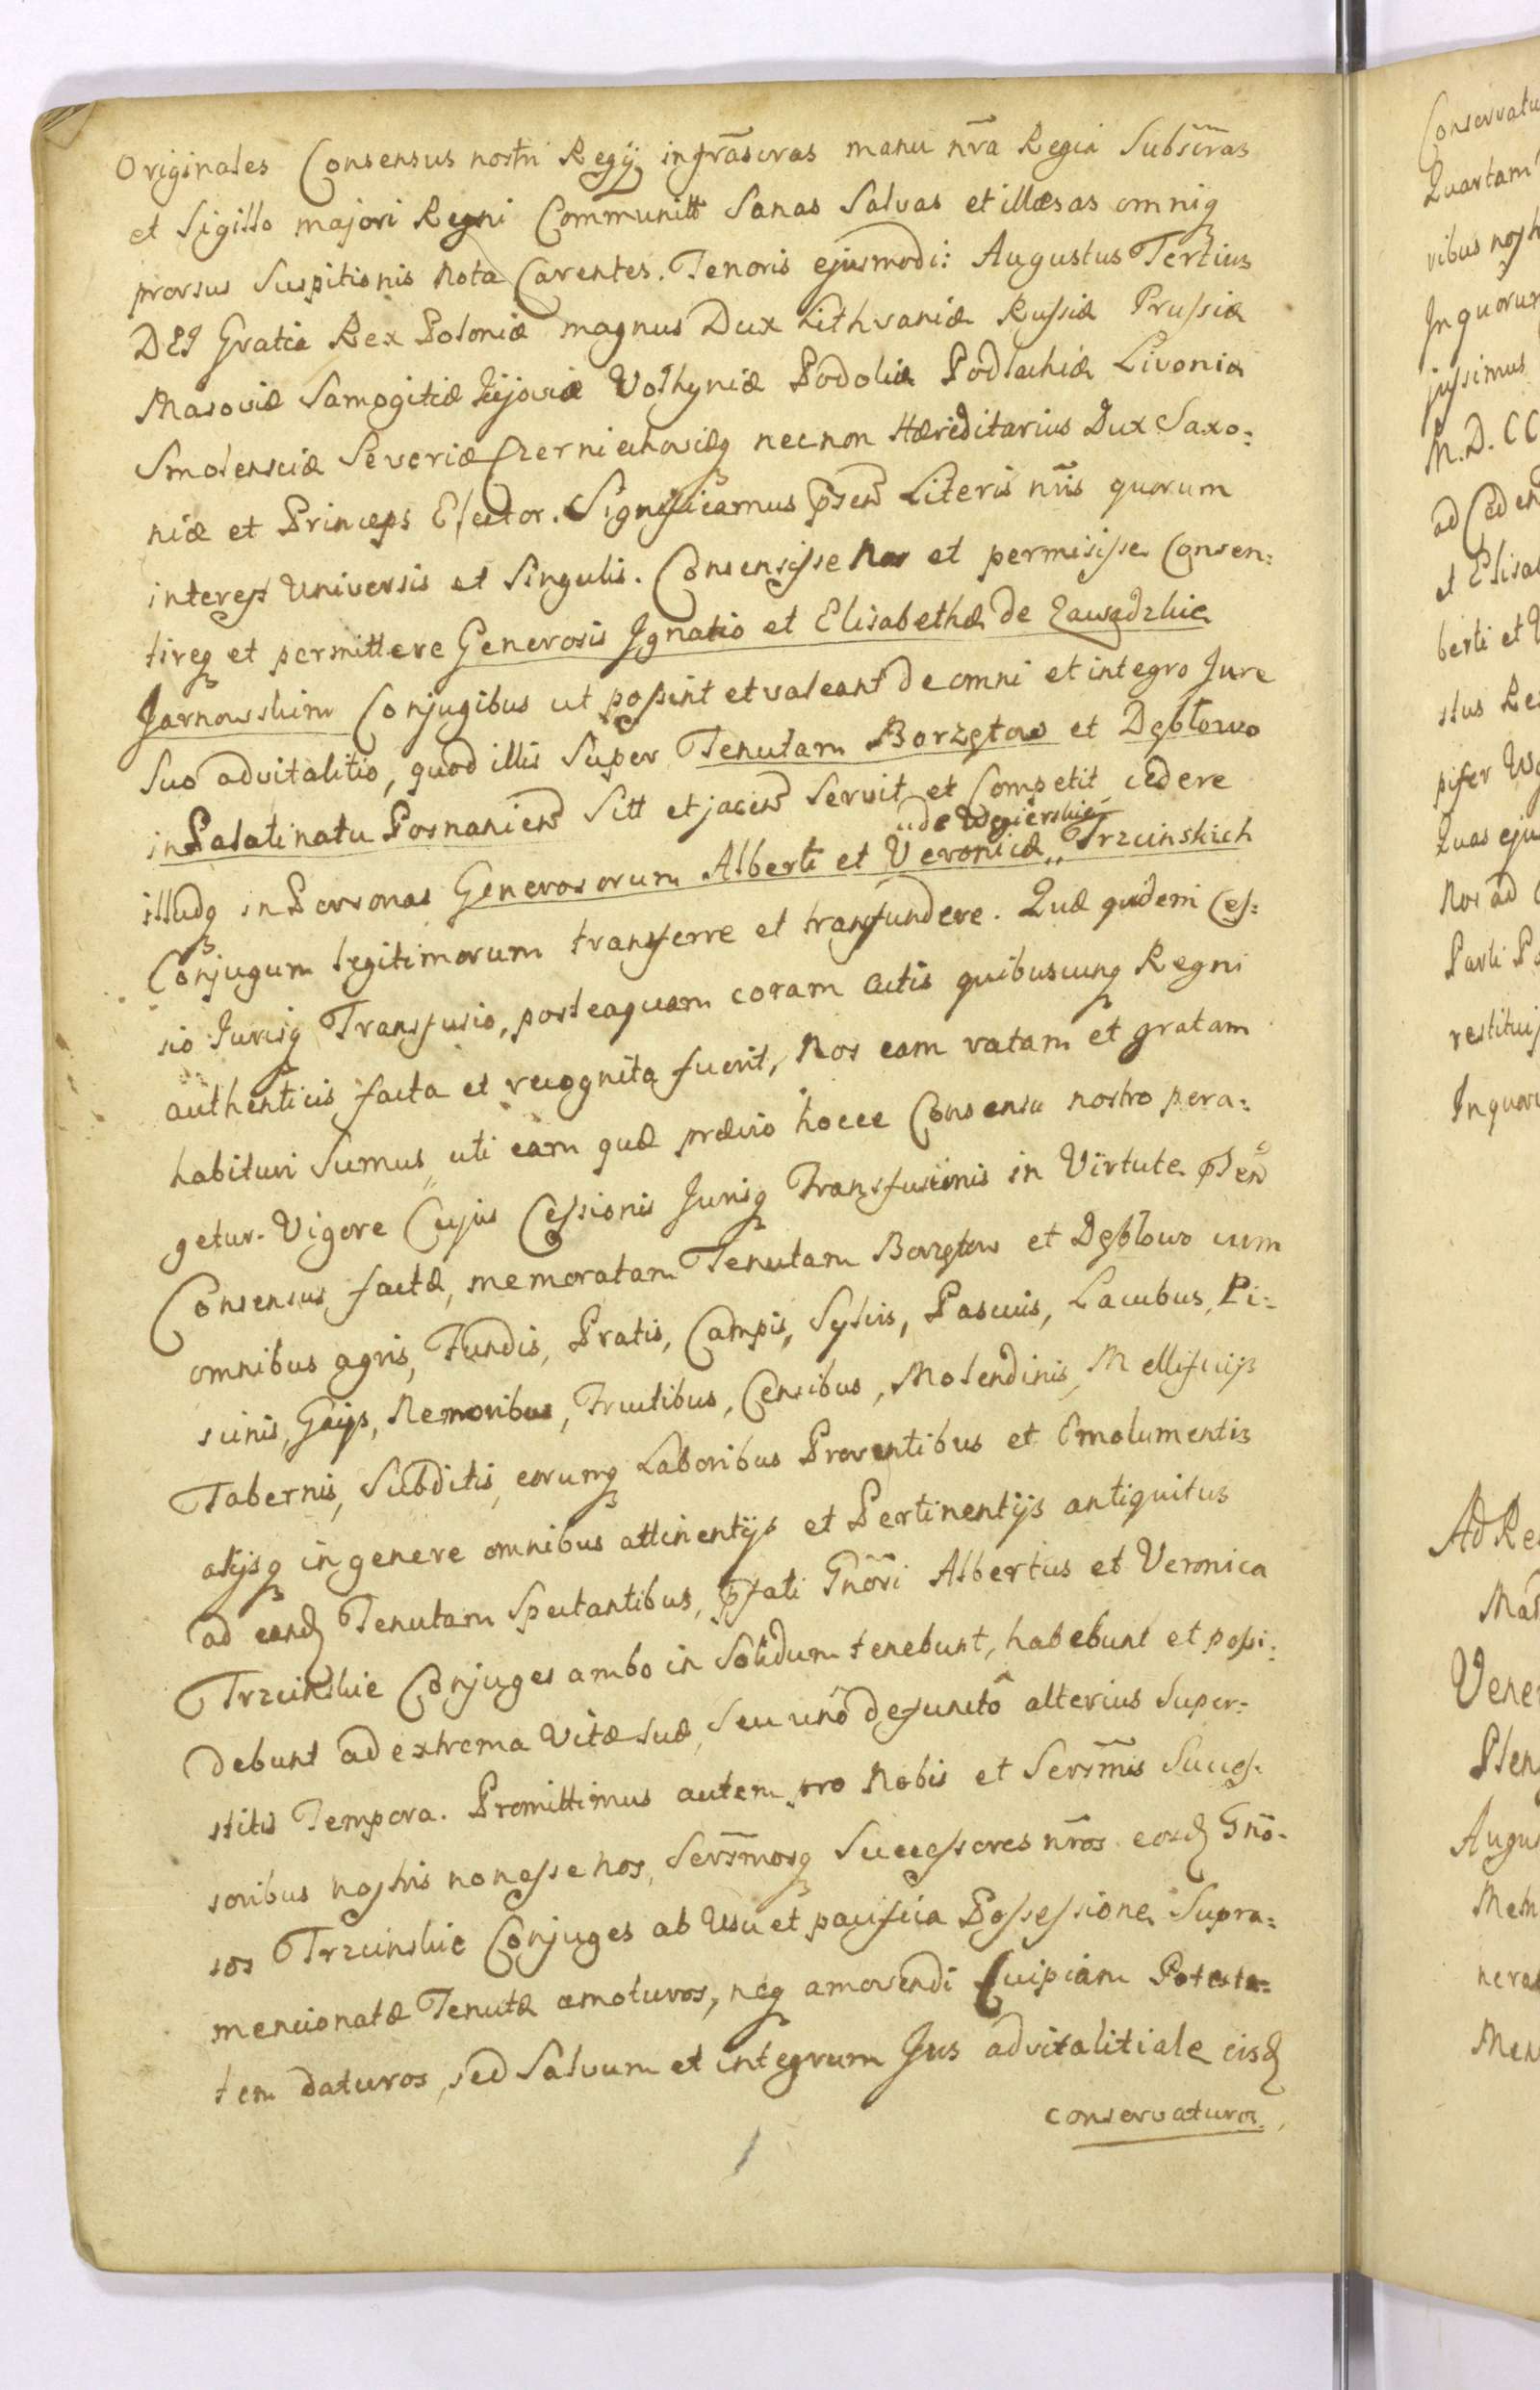 Originales Consensus nostri Regij infrascras manu nra Regia Subscras
et Sigillo majori Regni Communitt Sanas Salvas et illæsas omniq
prorsus Suspitionis Nota Carentes. Tenoris ejusmodi: Augustus Tertius
DEI Gratia Rex Poloniæ magnus Dux Lithvaniæ Russiæ Prussiæ
Masoviæ Samogitiæ Kijoviæ Volhyniæ Podoliæ Podlachiæ Livoniæ
Smolensciæ Severiæ Czerniechoviæq necnon Hæreditarius Dux Saxo:
niæ et Princeps Elector. Significamus pseñ Literis nris quorum
interest Universis et Singulis. Consensisse Nos et permisisse Consen:
tireq et permittere Generosis Ignatio et Elisabethæ de Zawadzkie
Jarnowskim Conjugibus ut possint et valeant de omni et integro Jure
Suo advitalitio, quod illis Super Tenutam Borzętow et Dębłowo
in Palatinatu Posnanień Sitt et jaceñ Servit et Competit cedere
illudq in Personas Generosorum Alberti et Veronicæ „de Węgierskie„ Trzcinskich
Conjugum legitimorum transferre et transfundere. Quæ quidem Ces:
sio Jurisq Transfusio, posteaquam coram Actis quibuscunq Regni
authenticis facta et recognita fuerit, Nos eam ratam et gratam
habituri Sumus uti eam quæ prævio hocce Consensu nostro pera:
getur. Vigore Cujus Cessionis Jurisq Transfusionis in Virtute pseñ
Consensus factæ, memoratam Tenutam Borzętow et Dębłowo cum
omnibus agris, Fundis, Pratis, Campis, Sylvis, Pascuis, Lacubus, Pi:
scinis, Gajis, Nemoribus, Fructibus, Censibus, Molendinis, Mellificijs
Tabernis, Subditis, eorumq Laboribus Proventibus et Emolumentis
alijsq in genere omnibus attinentijs et Pertinentijs antiquitus
ad eand Tenutam Spectantibus, pfati Gnõri Albertus et Veronica
Trzcinskie Conjuges ambo in Solidum tenebunt, habebunt et possi:
debunt ad extrema Vitæ suæ, Seu unô defunctô alterius Super:
stitis Tempora. Promittimus autem pro Nobis et Serr̃mis Succes:
soribus nostris non esse nos, Serr̃mosq Successores nros eosd Gnõ:
sos Trzcinskie Conjuges ab Usu et pacifica Possessione Supra:
mencionatæ Tenutæ amoturos, neq amovendi Cuipiam Potesta:
tem daturos, sed Salvum et integrum Jus advitalitiale eisd
conservaturos
Conservatu
Quartam
ribus nost
In quorum
jussimus
M.D.CC
ad Ced
et Elisa
berti et V
stus Re
pifer Wę
Quas eju
Nos ad
Pauli Po
restitui
In quor
Ad Re
Mad
Vene
Plen
Augus
Mem
nera
Men